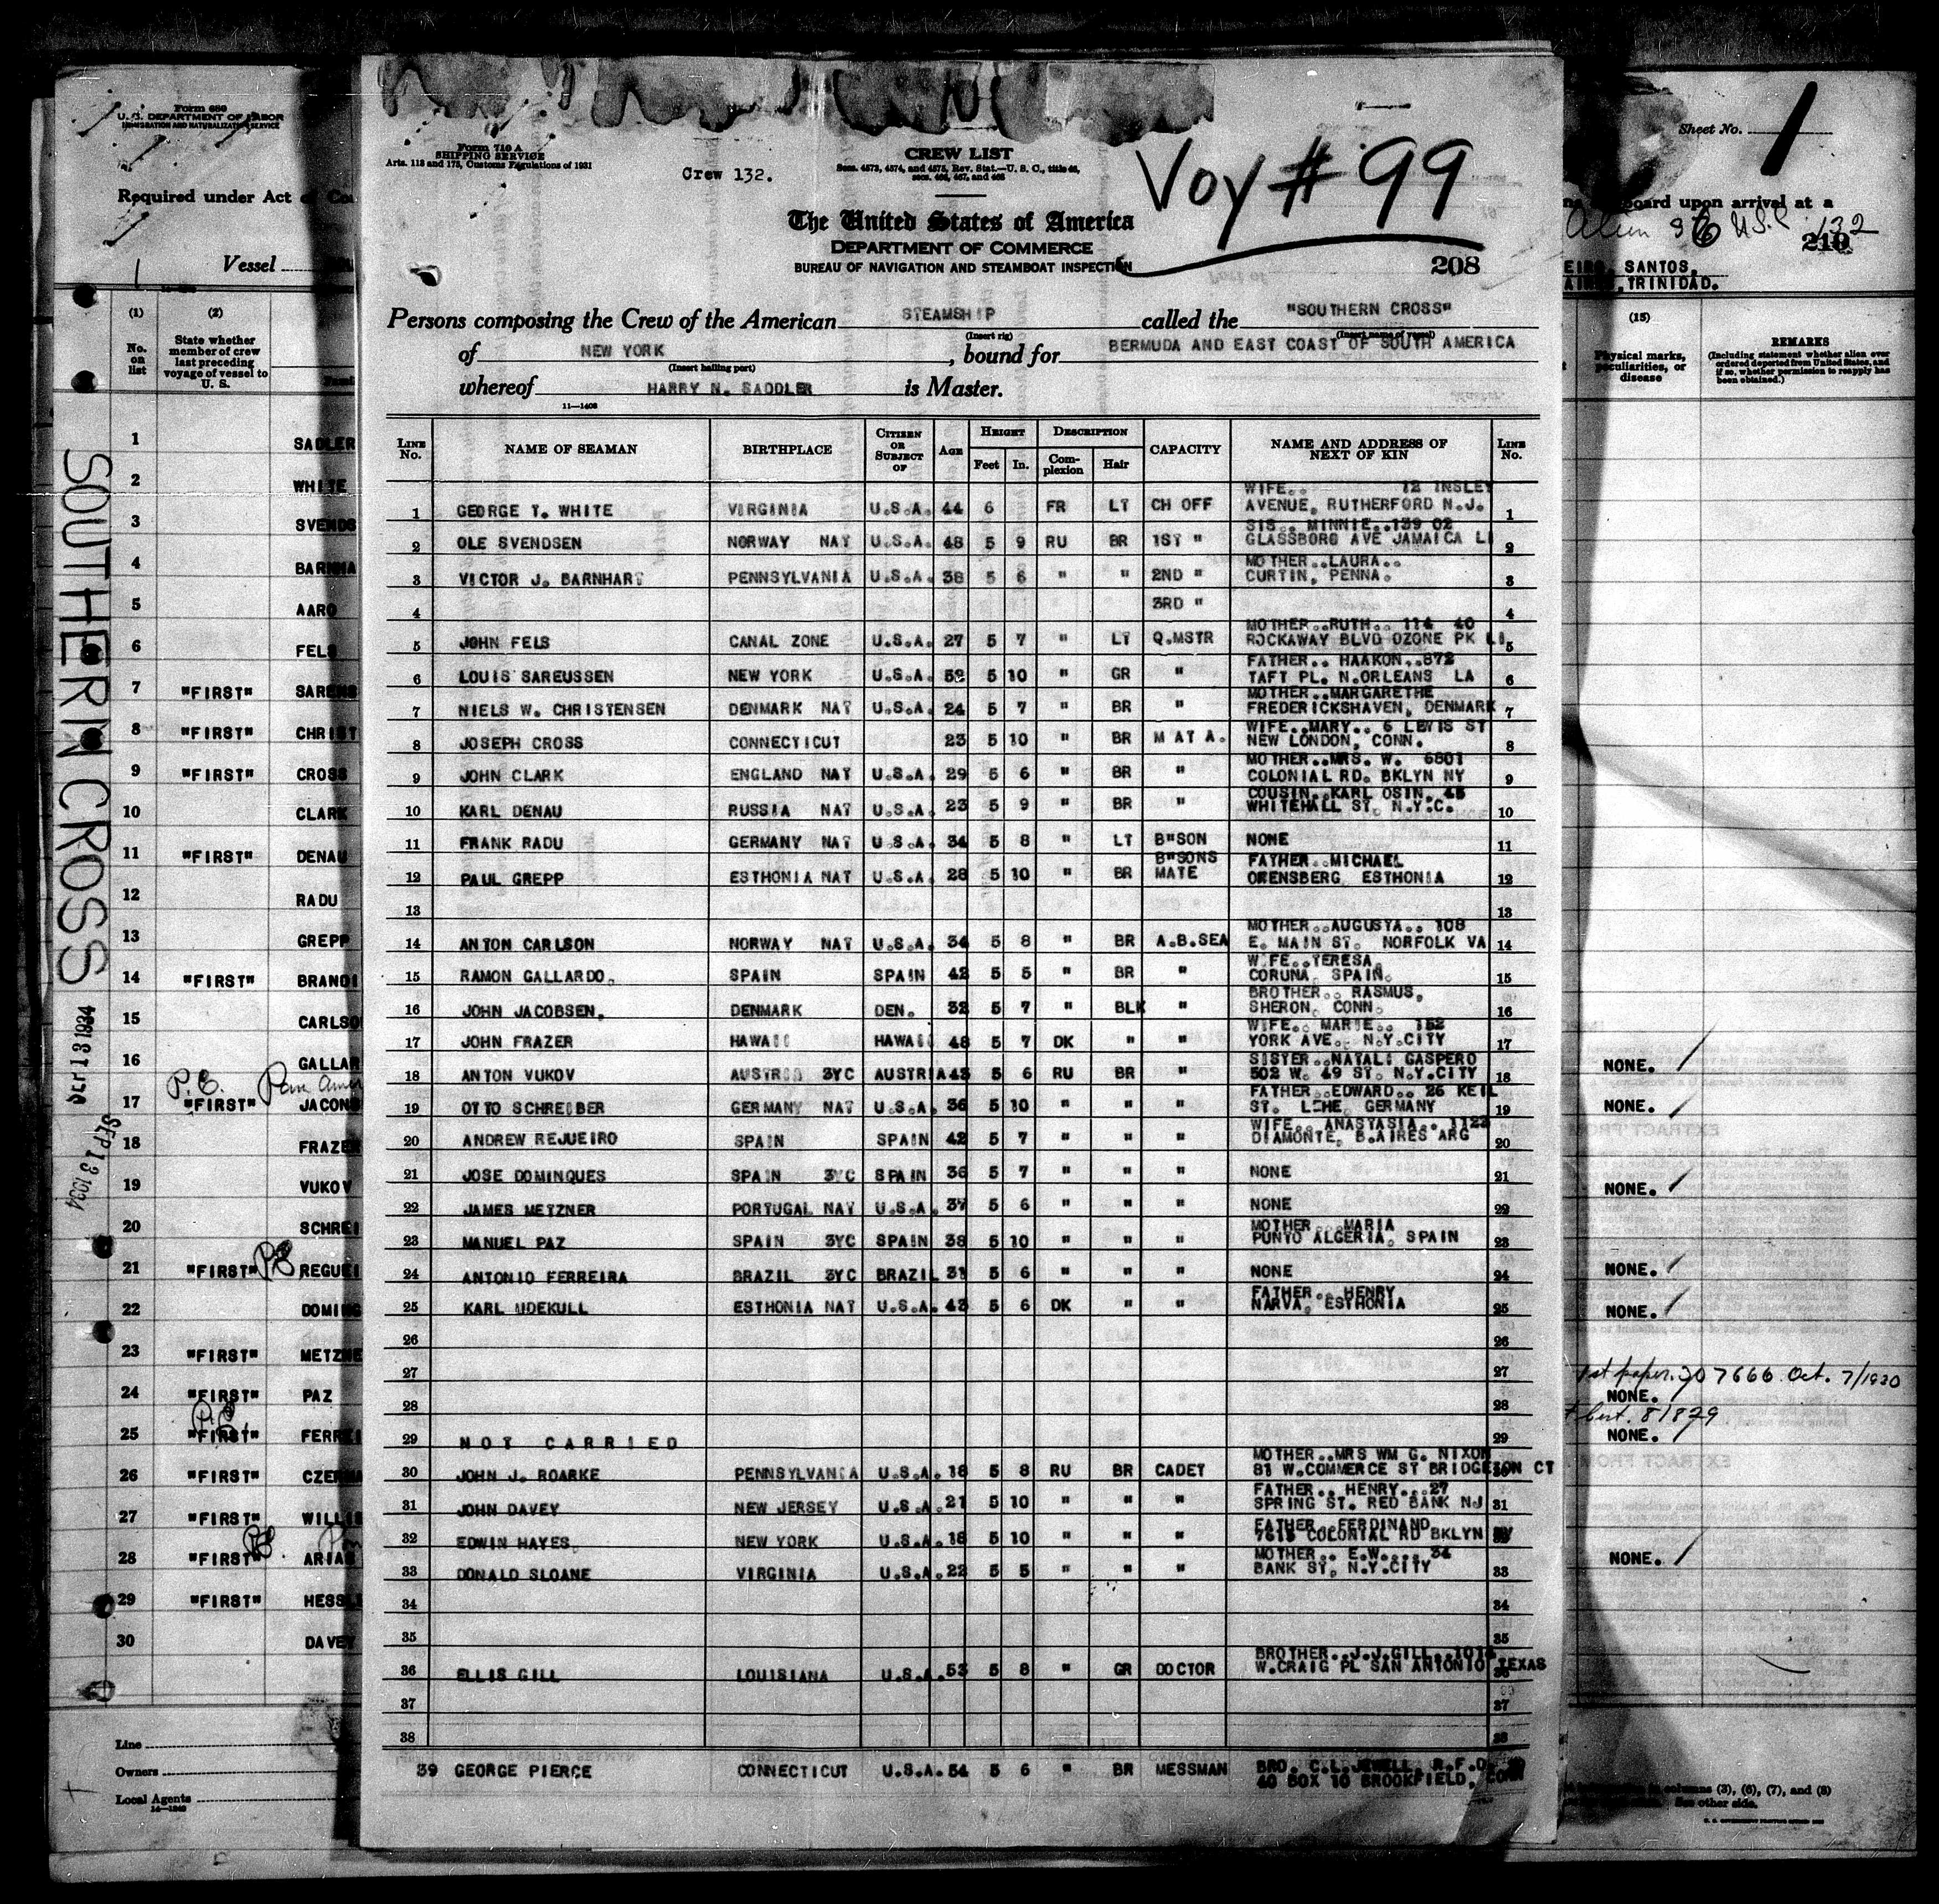 Form 689
U. S. DEPARTMENT OF LABOR
IMMIGRATION AND NATURALIZATION SERVICE
Required under Act of Co
Vessel
(1)
No. on list
(2)
State whether member of crew last preceding voyage of vessel to U. S.
1 SADLER
2 WHITE
3 SVENDS
4 BARNHA
5 AARO
6 FELS
7 "FIRST" SARENS
8 "FIRST" CHRIST
9 "FIRST" CROSS
10 CLARK
11 "FIRST" DENAU
12 RADU
13 GREPP
14 "FIRST" BRANDI
15 CARLSO
16 GALLAR
17 "FIRST" JACOBS
18 FRAZER
19 VUKOV
20 SCHREI
21 "FIRST" REGUEI
22 DOMING
23 "FIRST" METZNE
24 "FIRST" PAZ
25 "FIRST" FERREI
26 "FIRST" CZERMA
27 "FIRST" WILLIS
28 "FIRST" ARIAS
29 "FIRST" HESSL
30 DAVEY
Line
Owners
Local Agents
SOUTHERN CROSS
SEP 13 1934
SEP 13 1934
Form 710 A
SHIPPING SERVICE
Arts. 118 and 175, Customs Regulations of 1931
Crew 132.
CREW LIST
Secs. 4573, 4574, and 4575, Rev. Stat.—U. S. C., title 46,
secs. 464, 467, and 468
Voy # 99
The United States of America
DEPARTMENT OF COMMERCE
BUREAU OF NAVIGATION AND STEAMBOAT INSPECTION
208
Persons composing the Crew of the American STEAMSHIP called the "SOUTHERN CROSS"
(Insert rig) (Insert name of vessel)
of NEW YORK, bound for BERMUDA AND EAST COAST OF SOUTH AMERICA
(Insert hailing port)
whereof HARRY N. SADDLER is Master.
11—1408
LINE No. NAME OF SEAMAN BIRTHPLACE CITIZEN OR SUBJECT OF AGE HEIGHT Feet In. DESCRIPTION Complexion Hair CAPACITY NAME AND ADDRESS OF NEXT OF KIN LINE No.
WIFE.. 12 INSLEY
1 GEORGE T. WHITE VIRGINIA U.S.A. 44 6 FR LT CH OFF AVENUE, RUTHERFORD N.J. 1
SIS.. MINNIE..139 02
2 OLE SVENDSEN NORWAY NAT U.S.A. 48 5 9 RU BR 1ST " GLASSBORO AVE JAMAICA LI 2
MOTHER..LAURA..
3 VICTOR J. BARNHART PENNSYLVANIA U.S.A. 38 5 6 " " 2ND " CURTIN, PENNA. 3
4 3RD " 4
MOTHER..RUTH.. 114 40
5 JOHN FELS CANAL ZONE U.S.A. 27 5 7 " LT Q.MSTR ROCKAWAY BLVD OZONE PK LI 5
FATHER.. HAAKON..872
6 LOUIS SAREUSSEN NEW YORK U.S.A. 52 5 10 " GR " TAFT PL. N.ORLEANS LA 6
MOTHER..MARGARETHE
7 NIELS W. CHRISTENSEN DENMARK NAT U.S.A. 24 5 7 " BR " FREDERICKSHAVEN, DENMARK 7
WIFE..MARY.. 6 LEWIS ST
8 JOSEPH CROSS CONNECTICUT 23 5 10 " BR M AT A. NEW LONDON, CONN. 8
MOTHER..MRS. W. 6801
9 JOHN CLARK ENGLAND NAT U.S.A. 29 5 6 " BR " COLONIAL RD. BKLYN NY 9
COUSIN..KARL OSIN, 45
10 KARL DENAU RUSSIA NAT U.S.A. 23 5 9 " BR " WHITEHALL ST. N.Y.C. 10
11 FRANK RADU GERMANY NAT U.S.A. 34 5 8 " LT B"SON NONE 11
B"SONS FATHER..MICHAEL
12 PAUL GREPP ESTHONIA NAT U.S.A. 28 5 10 " BR MATE ORENSBERG, ESTHONIA 12
13 13
MOTHER..AUGUSTA.. 108
14 ANTON CARLSON NORWAY NAT U.S.A. 34 5 8 " BR A.B.SEA E. MAIN ST. NORFOLK VA 14
WIFE..TERESA,
15 RAMON GALLARDO. SPAIN SPAIN 42 5 5 " BR " CORUNA, SPAIN. 15
BROTHER.. RASMUS,
16 JOHN JACOBSEN. DENMARK DEN. 32 5 7 " BLK " SHERON, CONN. 16
WIFE.. MARIE.. 152
17 JOHN FRAZER HAWAII HAWAII 48 5 7 DK " " YORK AVE. N.Y.CITY 17
SISTER..NATALI GASPERO
18 ANTON VUKOV AUSTRIA 3YC AUSTRIA 43 5 6 RU BR " 502 W. 49 ST. N.Y.CITY 18
FATHER..EDWARD.. 26 KEIL
19 OTTO SCHREIBER GERMANY NAT U.S.A. 36 5 10 " " " ST. LEHE, GERMANY 19
WIFE.. ANASTASIA.. 1123
20 ANDREW REJUEIRO SPAIN SPAIN 42 5 7 " " " DIAMONTE, B.AIRES ARG 20
21 JOSE DOMINQUES SPAIN 3YC SPAIN 36 5 7 " " " NONE 21
22 JAMES METZNER PORTUGAL NAT U.S.A. 37 5 6 " " " NONE 22
MOTHER.. MARIA
23 MANUEL PAZ SPAIN 3YC SPAIN 38 5 10 " " " PUNTO ALGERIA, SPAIN 23
24 ANTONIO FERREIRA BRAZIL 3YC BRAZIL 31 5 6 " " " NONE 24
FATHER.. HENRY
25 KARL UDEKULL ESTHONIA NAT U.S.A. 43 5 6 DK " " NARVA, ESTHONIA 25
26 26
27 27
28 28
29 NOT CARRIED 29
MOTHER..MRS WM G. NIXON
30 JOHN J. ROARKE PENNSYLVANIA U.S.A. 18 5 8 RU BR CADET 81 W.COMMERCE ST BRIDGETON CT
FATHER.. HENRY..27
31 JOHN DAVEY NEW JERSEY U.S.A. 21 5 10 " " " SPRING ST. RED BANK NJ 31
FATHER..FERDINAND
32 EDWIN HAYES NEW YORK U.S.A. 18 5 10 " " " 7615 COLONIAL RD BKLYN NY
MOTHER.. E.W.... 34
33 DONALD SLOANE VIRGINIA U.S.A. 22 5 5 " " " BANK ST, N.Y.CITY 33
34
35 35
BROTHER..J.J.GILL..1014
36 ELLIS GILL LOUISIANA U.S.A. 53 5 8 " GR DOCTOR W.CRAIG PL SAN ANTONIO TEXAS
37 37
38 38
39 GEORGE PIERCE CONNECTICUT U.S.A. 54 5 6 " BR MESSMAN BRO. C.L.JEWELL, R.F.D.
40 BOX 10 BROOKFIELD, CONN
Sheet No. 1
board upon arrival at a
Alien 36 U.S.
132
210
EIRO, SANTOS,
AIRES, TRINIDAD.
(15)
Physical marks, peculiarities, or disease
REMARKS
(Including statement whether alien ever ordered deported from United States, and if so, whether permission to reapply has been obtained.)
NONE.
NONE.
NONE.
NONE.
NONE.
1st paper. 207666 Oct. 7/1930
NONE.
cert. 81829
NONE.
NONE.
columns (3), (6), (7), and (8)
See other side.